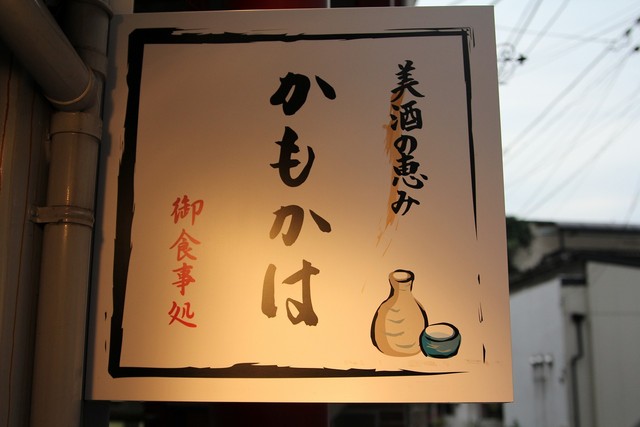 美酒の恵み
かもかは
御食事処